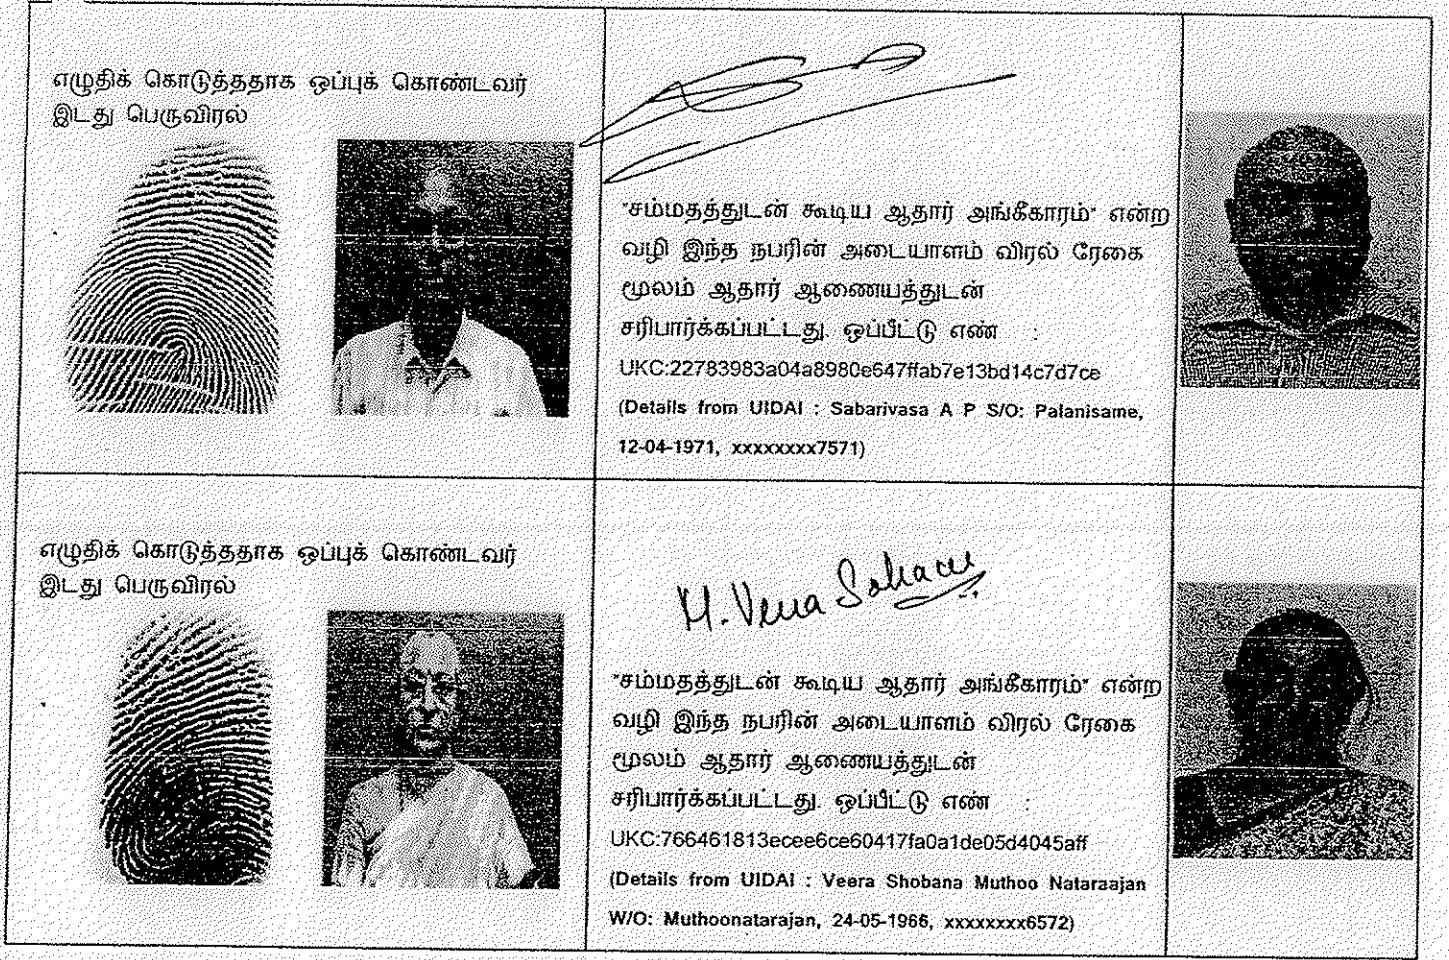 எழுதிக் கொடுத்ததாக ஒப்புக் கொண்டவர்
இடது பெருவிரல்
"சம்மதத்துடன் கூடிய ஆதார் அங்கீகாரம்" என்ற
வழி இந்த நபரின் அடையாளம் விரல் ரேகை
மூலம் ஆதார் ஆணையத்துடன்
சரிபார்க்கப்பட்டது. ஒப்பீட்டு எண் :
UKC:22783983a04a8980e647ffab7e13bd14c7d7ce
(Details from UIDAI : Sabarivasa A P S/O: Palanisame,
12-04-1971, xxxxxxxx7571)
எழுதிக் கொடுத்ததாக ஒப்புக் கொண்டவர்
இடது பெருவிரல்
"சம்மதத்துடன் கூடிய ஆதார் அங்கீகாரம்" என்ற
வழி இந்த நபரின் அடையாளம் விரல் ரேகை
மூலம் ஆதார் ஆணையத்துடன்
சரிபார்க்கப்பட்டது. ஒப்பீட்டு எண் :
UKC:766461813ecee6ce60417fa0a1de05d4045aff
(Details from UIDAI : Veera Shobana Muthoo Nataraajan
W/O: Muthoonatarajan, 24-05-1966, xxxxxxxx6572)